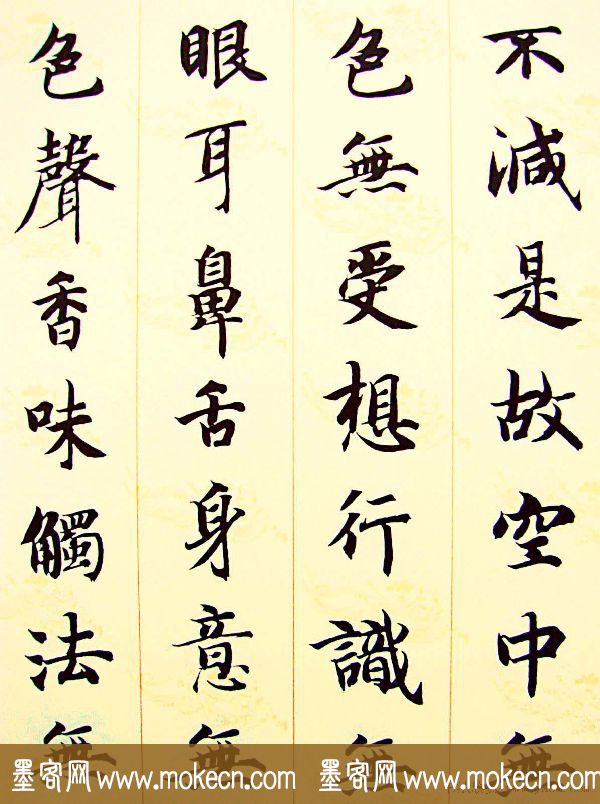 不減是故空中無
色無受想行識無
眼耳鼻舌身意無
色聲香味觸法無
墨客网 www.mokecn.com 墨客网 www.mokecn.com